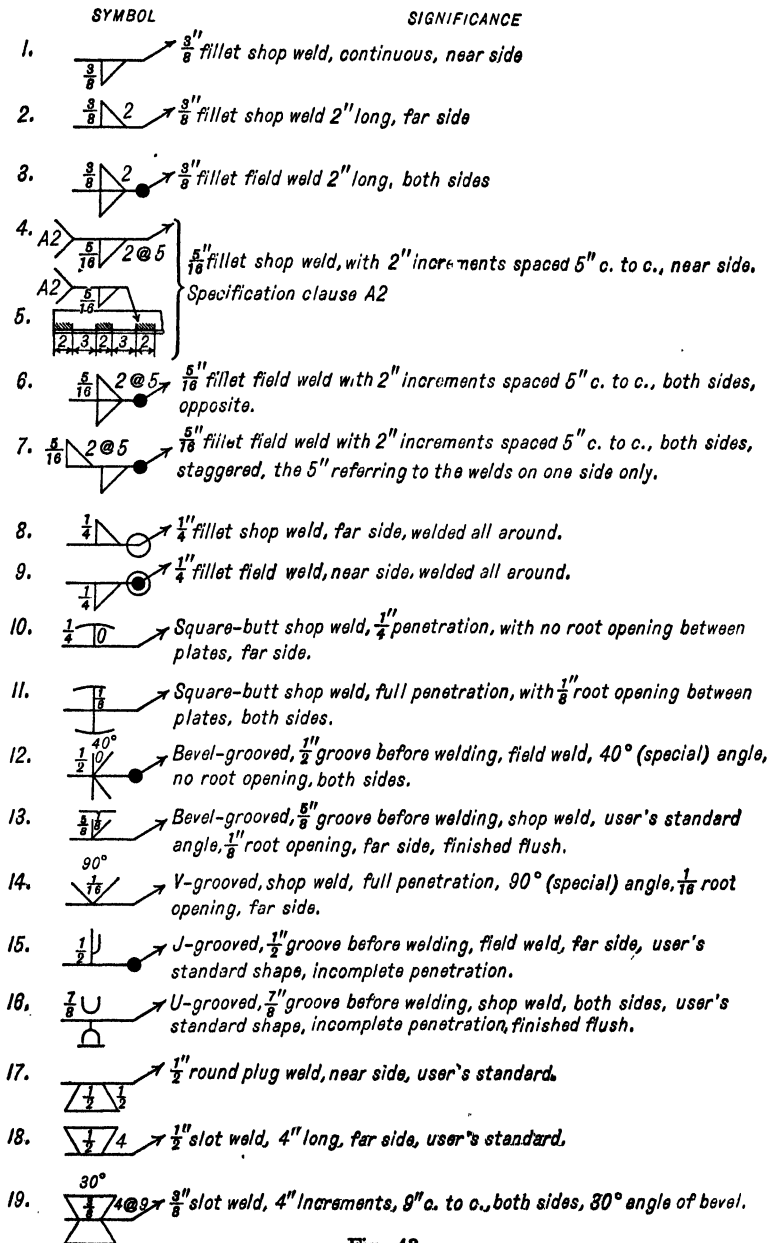 SYMBOL SIGNIFICANCE
1. 3/8 3/8" fillet shop weld, continuous, near side
2. 3/8 2 3/8" fillet shop weld 2" long, far side
3. 3/8 2 3/8" fillet field weld 2" long, both sides
4. A2 5/16 2@5
5/16" fillet shop weld, with 2" increments spaced 5" c. to c., near side.
Specification clause A2
A2 5/16
5.
2 3 2 3 2
6. 5/16 2@5 5/16" fillet field weld with 2" increments spaced 5" c. to c., both sides,
opposite.
7. 5/16 2@5 5/16" fillet field weld with 2" increments spaced 5" c. to c., both sides,
staggered, the 5" referring to the welds on one side only.
8. 1/4 1/4" fillet shop weld, far side, welded all around.
9. 1/4 1/4" fillet field weld, near side, welded all around.
10. 1/4 0 Square-butt shop weld, 1/4" penetration, with no root opening between
plates, far side.
11. 1/8 Square-butt shop weld, full penetration, with 1/8" root opening between
plates, both sides.
40°
12. 1/2 0 Bevel-grooved, 1/2" groove before welding, field weld, 40° (special) angle,
no root opening, both sides.
13. 5/8 1/8 Bevel-grooved, 5/8" groove before welding, shop weld, user's standard
angle, 1/8" root opening, far side, finished flush.
90°
14. 1/16 V-grooved, shop weld, full penetration, 90° (special) angle, 1/16 root
opening, far side.
15. 1/2 J-grooved, 1/2" groove before welding, field weld, far side, user's
standard shape, incomplete penetration.
16. 7/8 U-grooved, 7/8" groove before welding, shop weld, both sides, user's
standard shape, incomplete penetration, finished flush.
17. 1/2 1/2 1/2" round plug weld, near side, user's standard.
18. 1/2 4 1/2" slot weld, 4" long, far side, user's standard.
30°
19. 3/8 4@9 3/8" slot weld, 4" Increments, 9" c. to c., both sides, 30° angle of bevel.